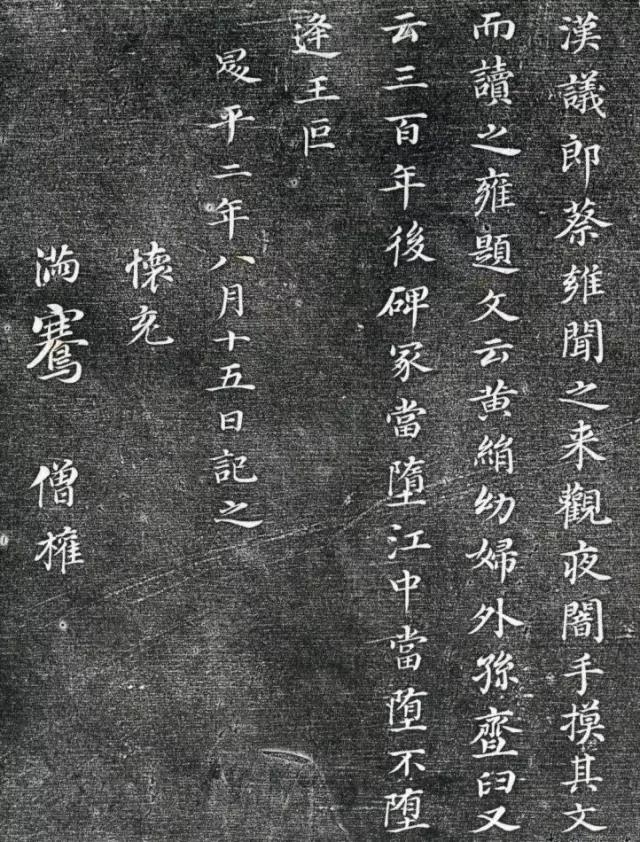 漢議郎蔡雍聞之来觀夜闇手摸其文
而讀之雍題文云黄絹幼婦外孫齏臼又
云三百年後碑冢當墮江中當墮不墮
逢王叵
升平二年八月十五日記之
懷充
滿騫
僧權